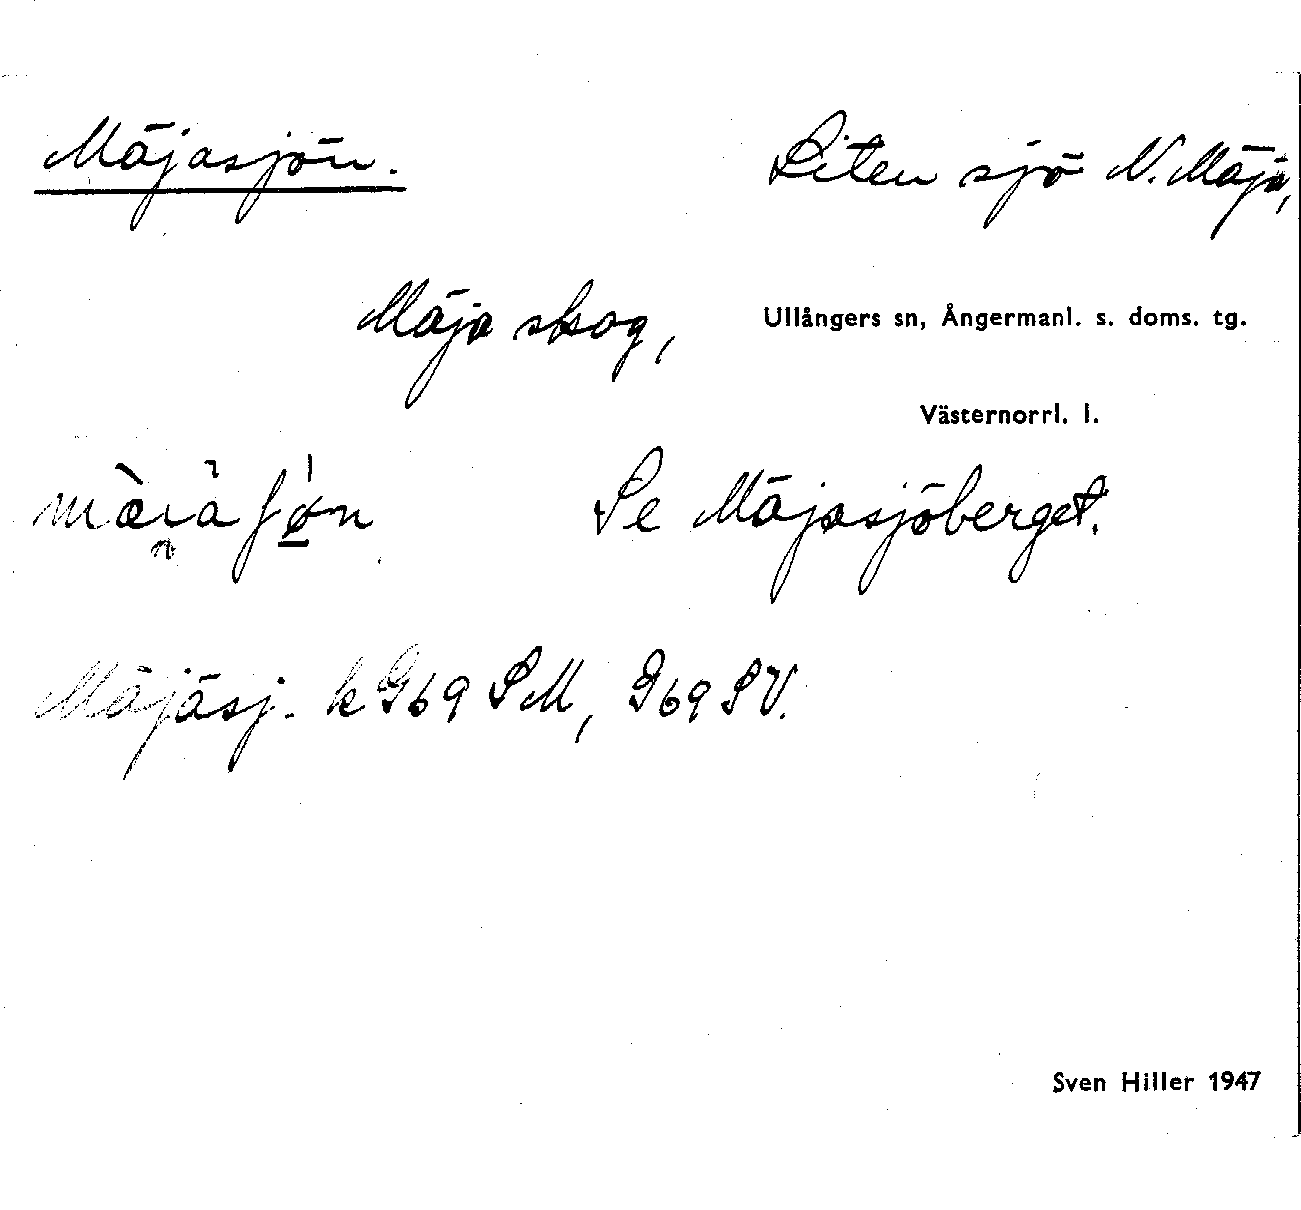 Mäjasjön.
Liten sjö N. Mäja,
Mäja skog,
Ullångers sn, Ångermanl. s. doms. tg.
Västernorrl. l.
Se Mäjasjöberget.
Mäjäsj. k G69 SM, G69 SV.
Sven Hiller 1947